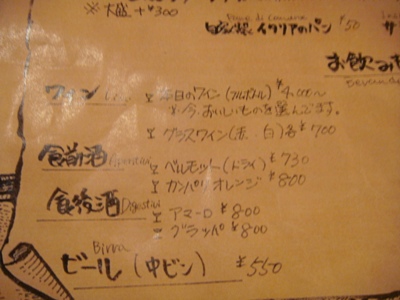 ※大盛 +¥300
Pane di Casa
イタリアのパン ¥50
サ
お飲みも
ワイン Vino
本日のワイン(フルボトル) ¥4,000〜
※今、おいしいものを選んでます。
グラスワイン(赤、白)各 ¥700
食前酒 Aperitivi
ベルモット(ドライ) ¥730
カンパリオレンジ ¥800
食後酒 Digestivi
アマーロ ¥800
グラッパ ¥800
Birra
ビール(中ビン) ¥550